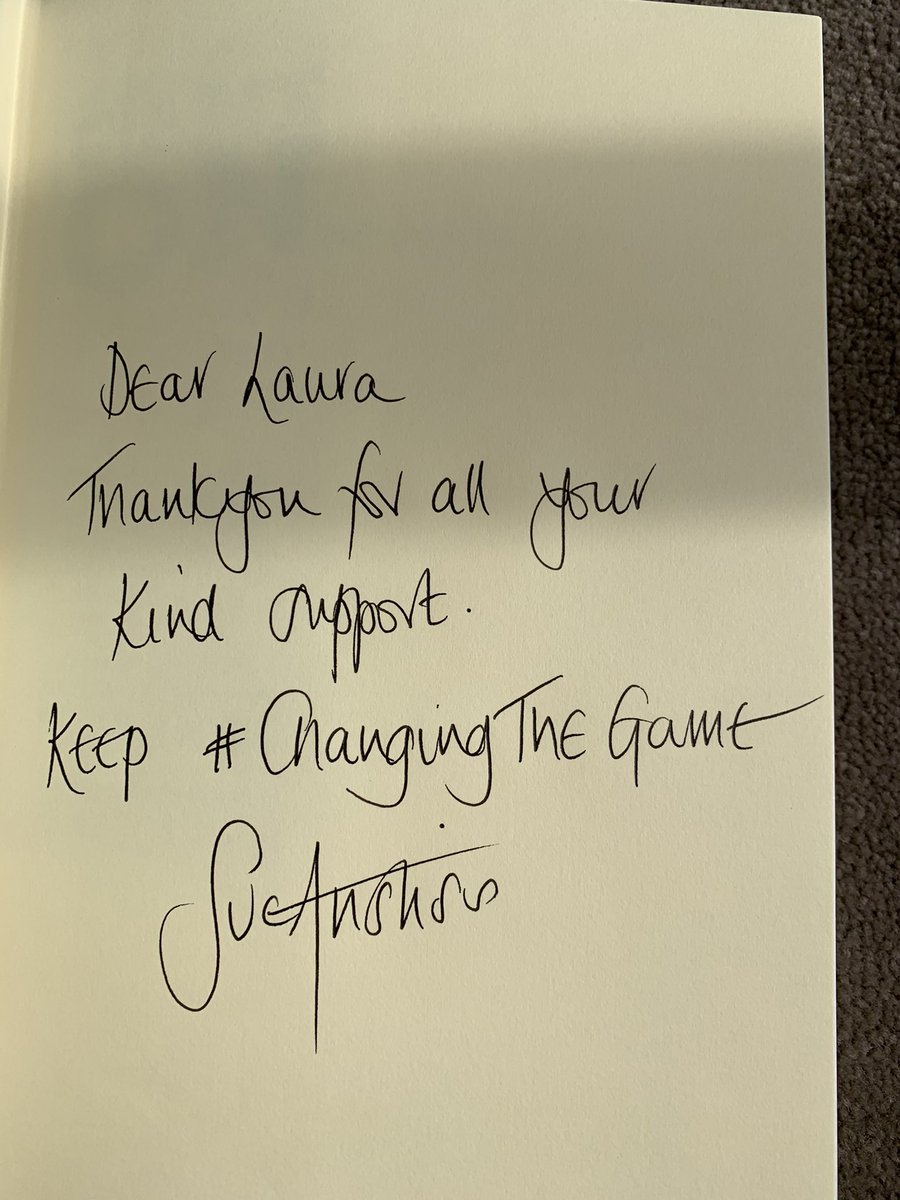 Dear Laura
Thankyou for all your
Kind support.
Keep #ChangingTheGame
Sue Anstiss